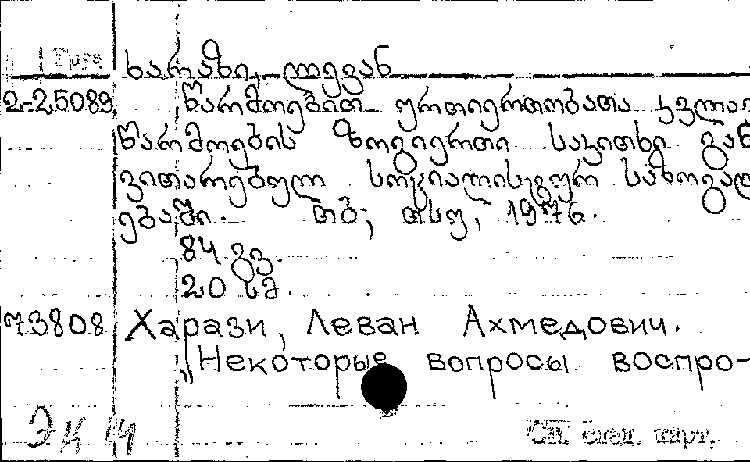 ხარაზი, ლევან
2-25089 წარმოებით ურთიერთობათა კვლავ
წარმოების ზოგიერთი საკითხი გან
ვითარებულ სოციალისტურ საზოგად
ებაში. თბ; თსუ, 1976.
84 გვ.
20 სმ.
73808 Харази, Леван Ахмедович.
"Некоторые вопросы воспро-
ЭК
См. след. карт.